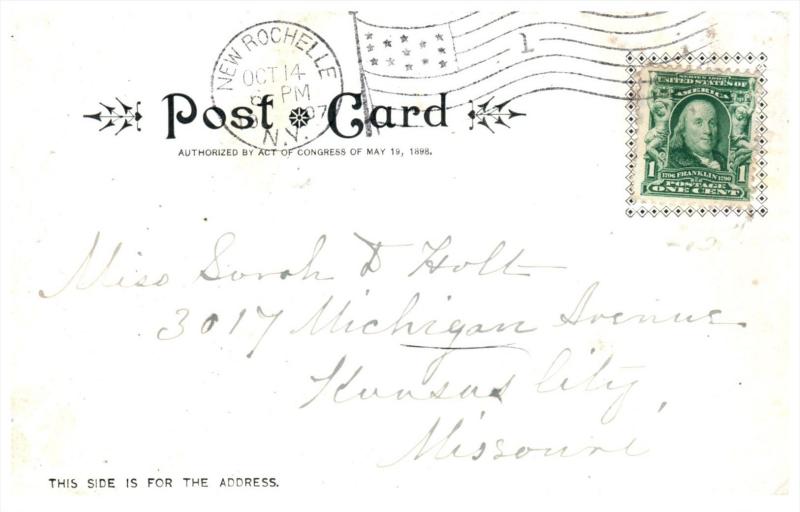 NEW ROCHELLE
OCT 14
PM
07
N.Y.
1
Post Card
AUTHORIZED BY ACT OF CONGRESS OF MAY 19, 1898.
SERIES 1902
UNITED STATES OF
AMERICA
1 1
1706 FRANKLIN 1790
POSTAGE
ONE CENT
Miss Sarah D Holt
3017 Michigan Avenue
Kansas City,
Missouri
THIS SIDE IS FOR THE ADDRESS.